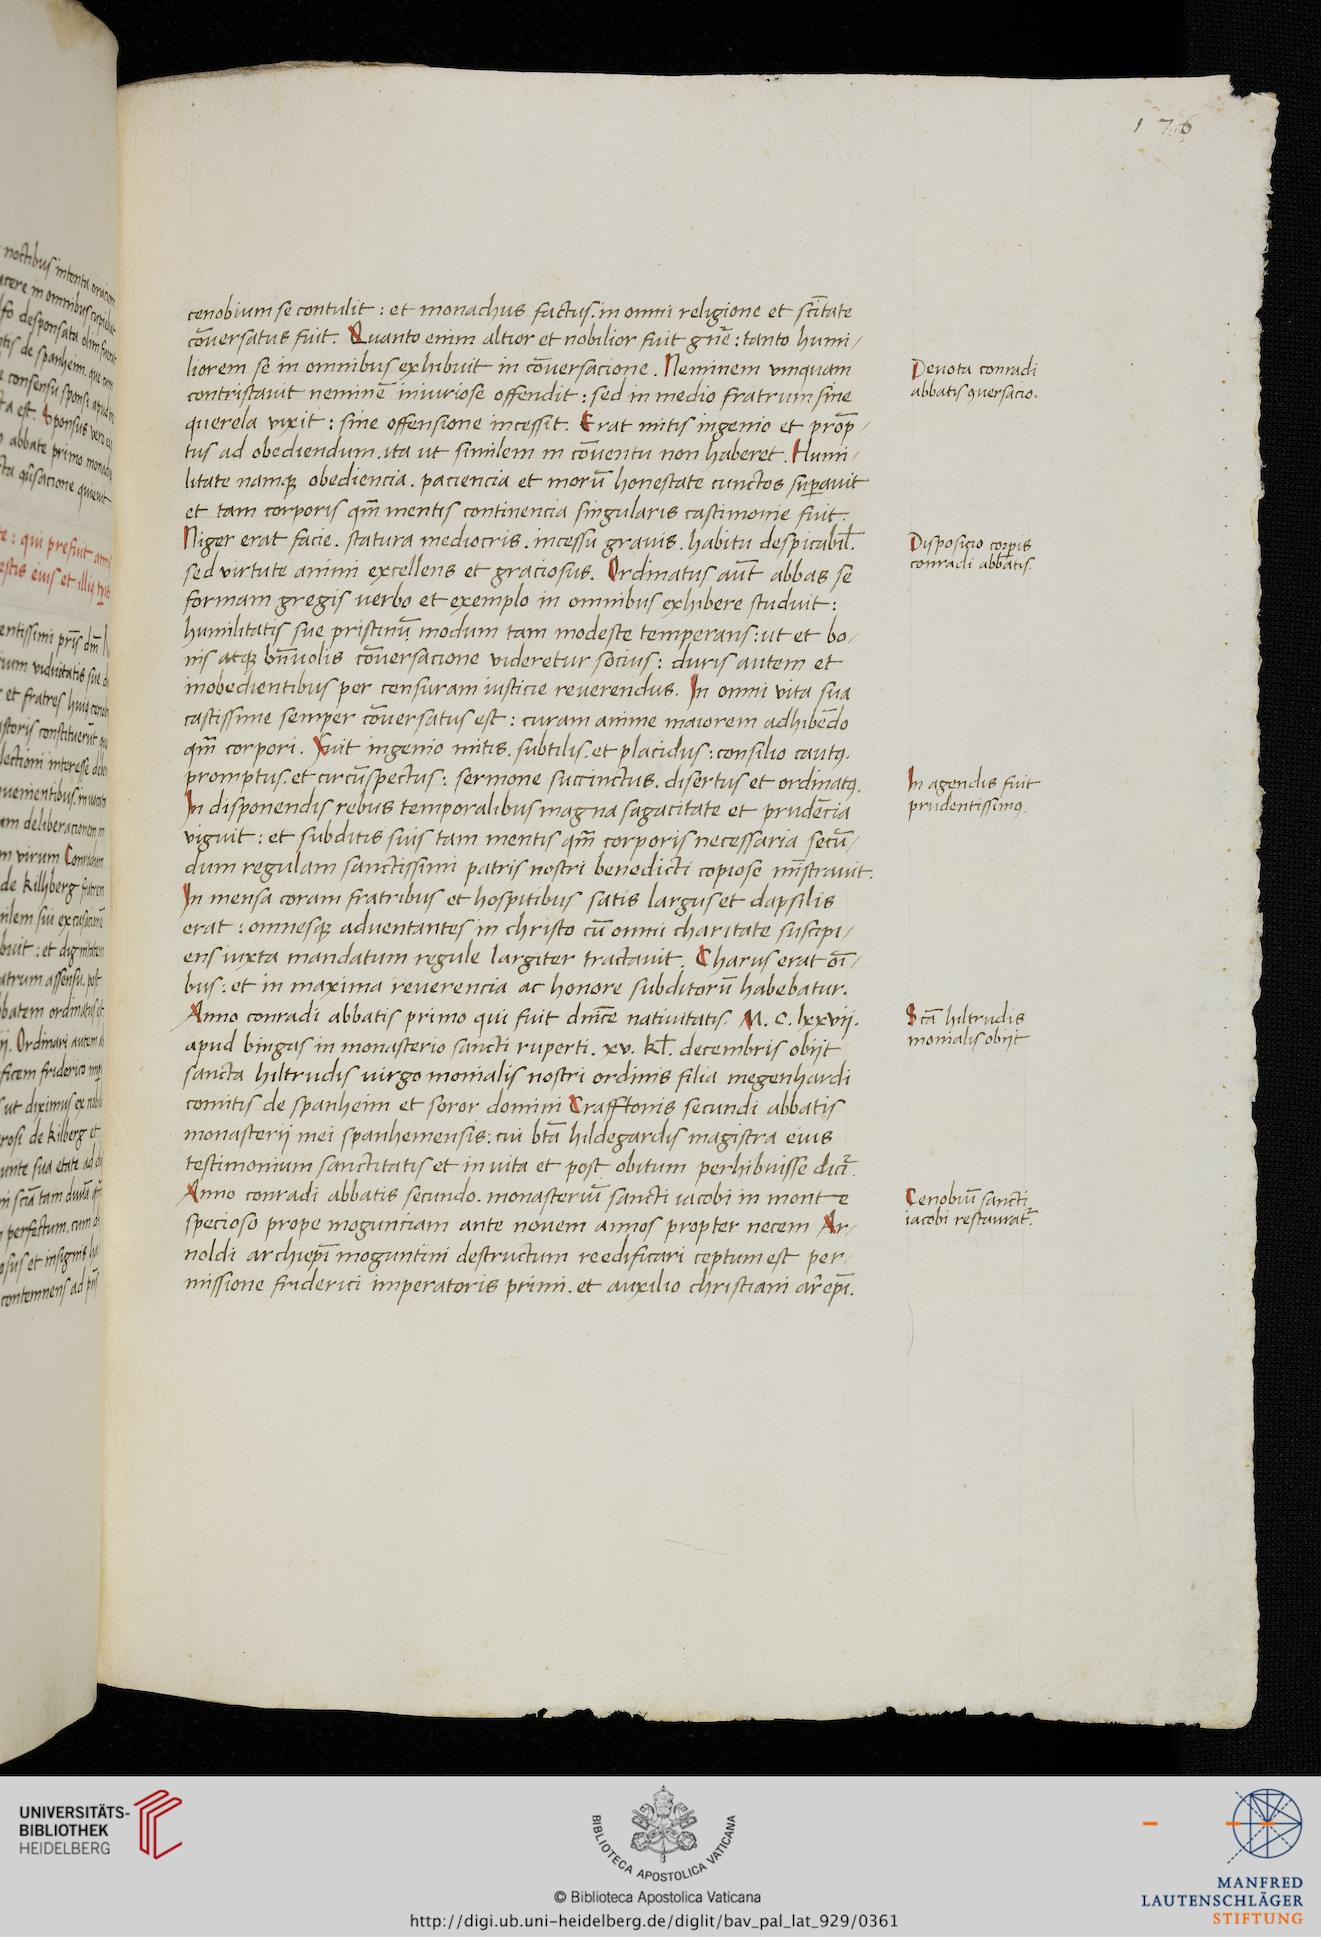 176
cenobium se contulit : et monachus factus. in omni religione et sc̄itate
cōversatus fuit. Quanto enim altior et nobilior fuit gn̄e : tanto humi/
liorem se in omnibus exhibuit in cōversacione. Neminem vmquam
contristauit neminē iniuriose offendit : sed in medio fratrum sine
querela vixit : sine offensione incessit. Erat mitis ingenio et prōp/
tus ad obediendum. ita ut similem in cōventu non haberet. Humi/
litate namqꝫ obediencia. paciencia et morū honestate cunctos suꝑauit
et tam corporis qm̄ mentis continencia singularis castimonie fuit.
Niger erat facie. statura mediocris. incessu grauis. habitu despicabil̄.
sed virtute animi excellens et graciosus. Ordinatus aut̄ abbas se
formam gregis uerbo et exemplo in omnibus exhibere studuit :
humilitatis sue pristinū modum tam modeste temperans : ut et bo/
nis atqꝫ bn̄uolis cōversacione videretur socius : duris autem et
inobedientibus per censuram iusticie reuerendus. In omni vita sua
castissime semper cōversatus est : curam anime maiorem adhibēdo
qm̄ corpori. Fuit ingenio mitis. subtilis. et placidus : consilio cautꝯ.
promptus. et circūspectus : sermone succinctus. disertus et ordinatꝯ.
In disponendis rebus temporalibus magna sagacitate et prudēcia
viguit : et subditis suis tam mentis qm̄ corporis necessaria secū/
dum regulam sanctissimi patris nostri benedicti copiose mīstrauit.
In mensa coram fratribus et hospitibus satis largus et dapsilis
erat : omnesqꝫ aduentantes in christo cū omni charitate suscipi/
ens iuxta mandatum regule largiter tractauit. Charus erat oī/
bus : et in maxima reuerencia ac honore subditorū habebatur.
Anno conradi abbatis primo qui fuit dn̄ice natiuitatis. M. C. lxxvij.
apud bingas in monasterio sancti ruperti. xv. kl̄. decembris obijt
sancta hiltrudis uirgo monialis nostri ordinis filia megenhardi
comitis de spanheim et soror domini Crafftonis secundi abbatis
monasterij mei spanhemensis : cui btā hildegardis magistra eius
testimonium sanctitatis et in uita et post obitum perhibuisse dicit̄.
Anno conradi abbatis secundo. monasteriū sancti iacobi in monte
specioso prope mogunciam ante nouem annos propter necem Ar/
noldi archiep̄i moguntini destructum reedificari ceptum est per/
missione friderici imperatoris primi. et auxilio christiani ar̄ep̄i.
Deuota conradi
abbatis ꝯuersacio.
Disposicio corꝑis
conradi abbatis.
In agendis fuit
prudentissimꝯ.
Sctā hiltrudis
monialis obijt
Cenobiū sancti
iacobi restaurat̄.
UNIVERSITÄTS-
BIBLIOTHEK
HEIDELBERG
BIBLIOTECA APOSTOLICA VATICANA
© Biblioteca Apostolica Vaticana
http://digi.ub.uni-heidelberg.de/diglit/bav_pal_lat_929/0361
MANFRED
LAUTENSCHLÄGER
STIFTUNG